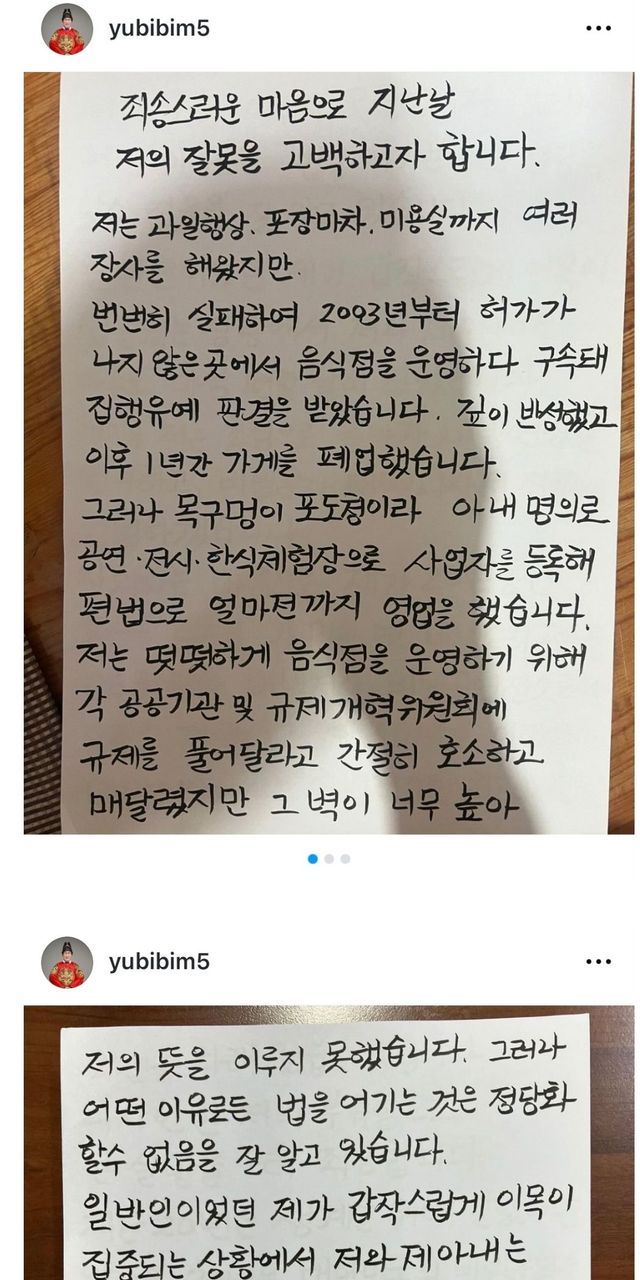 yubibim5
죄송스러운 마음으로 지난날
저의 잘못을 고백하고자 합니다.
저는 과일행상. 포장마차. 미용실까지 여러
장사를 해왔지만.
번번히 실패하여 2003년부터 허가가
나지 않은 곳에서 음식점을 운영하다 구속돼
집행유예 판결을 받았습니다. 깊이 반성했고
이후 1년간 가게를 폐업했습니다.
그러나 목구멍이 포도청이라 아내 명의로
공연·전시·한식체험장으로 사업자를 등록해
편법으로 얼마전까지 영업을 했습니다.
저는 떳떳하게 음식점을 운영하기 위해
각 공공기관 및 규제개혁위원회에
규제를 풀어달라고 간절히 호소하고
매달렸지만 그 벽이 너무 높아
yubibim5
저의 뜻을 이루지 못했습니다. 그러나
어떤 이유로든 법을 어기는 것은 정당화
할수 없음을 잘 알고 있습니다.
일반인이었던 제가 갑작스럽게 이목이
집중되는 상황에서 저와 제아내는